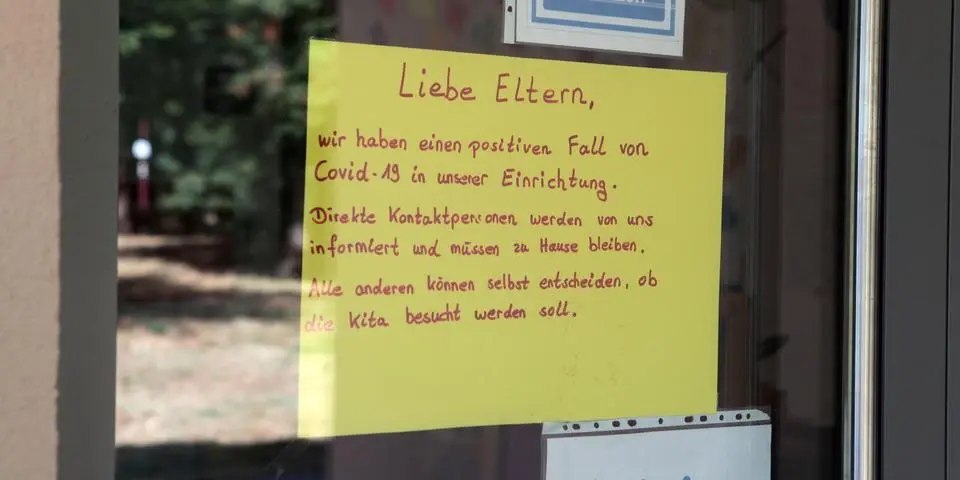 Liebe Eltern,
wir haben einen positiven Fall von
Covid-19 in unserer Einrichtung.
Direkte Kontaktpersonen werden von uns
informiert und müssen zu Hause bleiben.
Alle anderen können selbst entscheiden, ob
die Kita besucht werden soll.